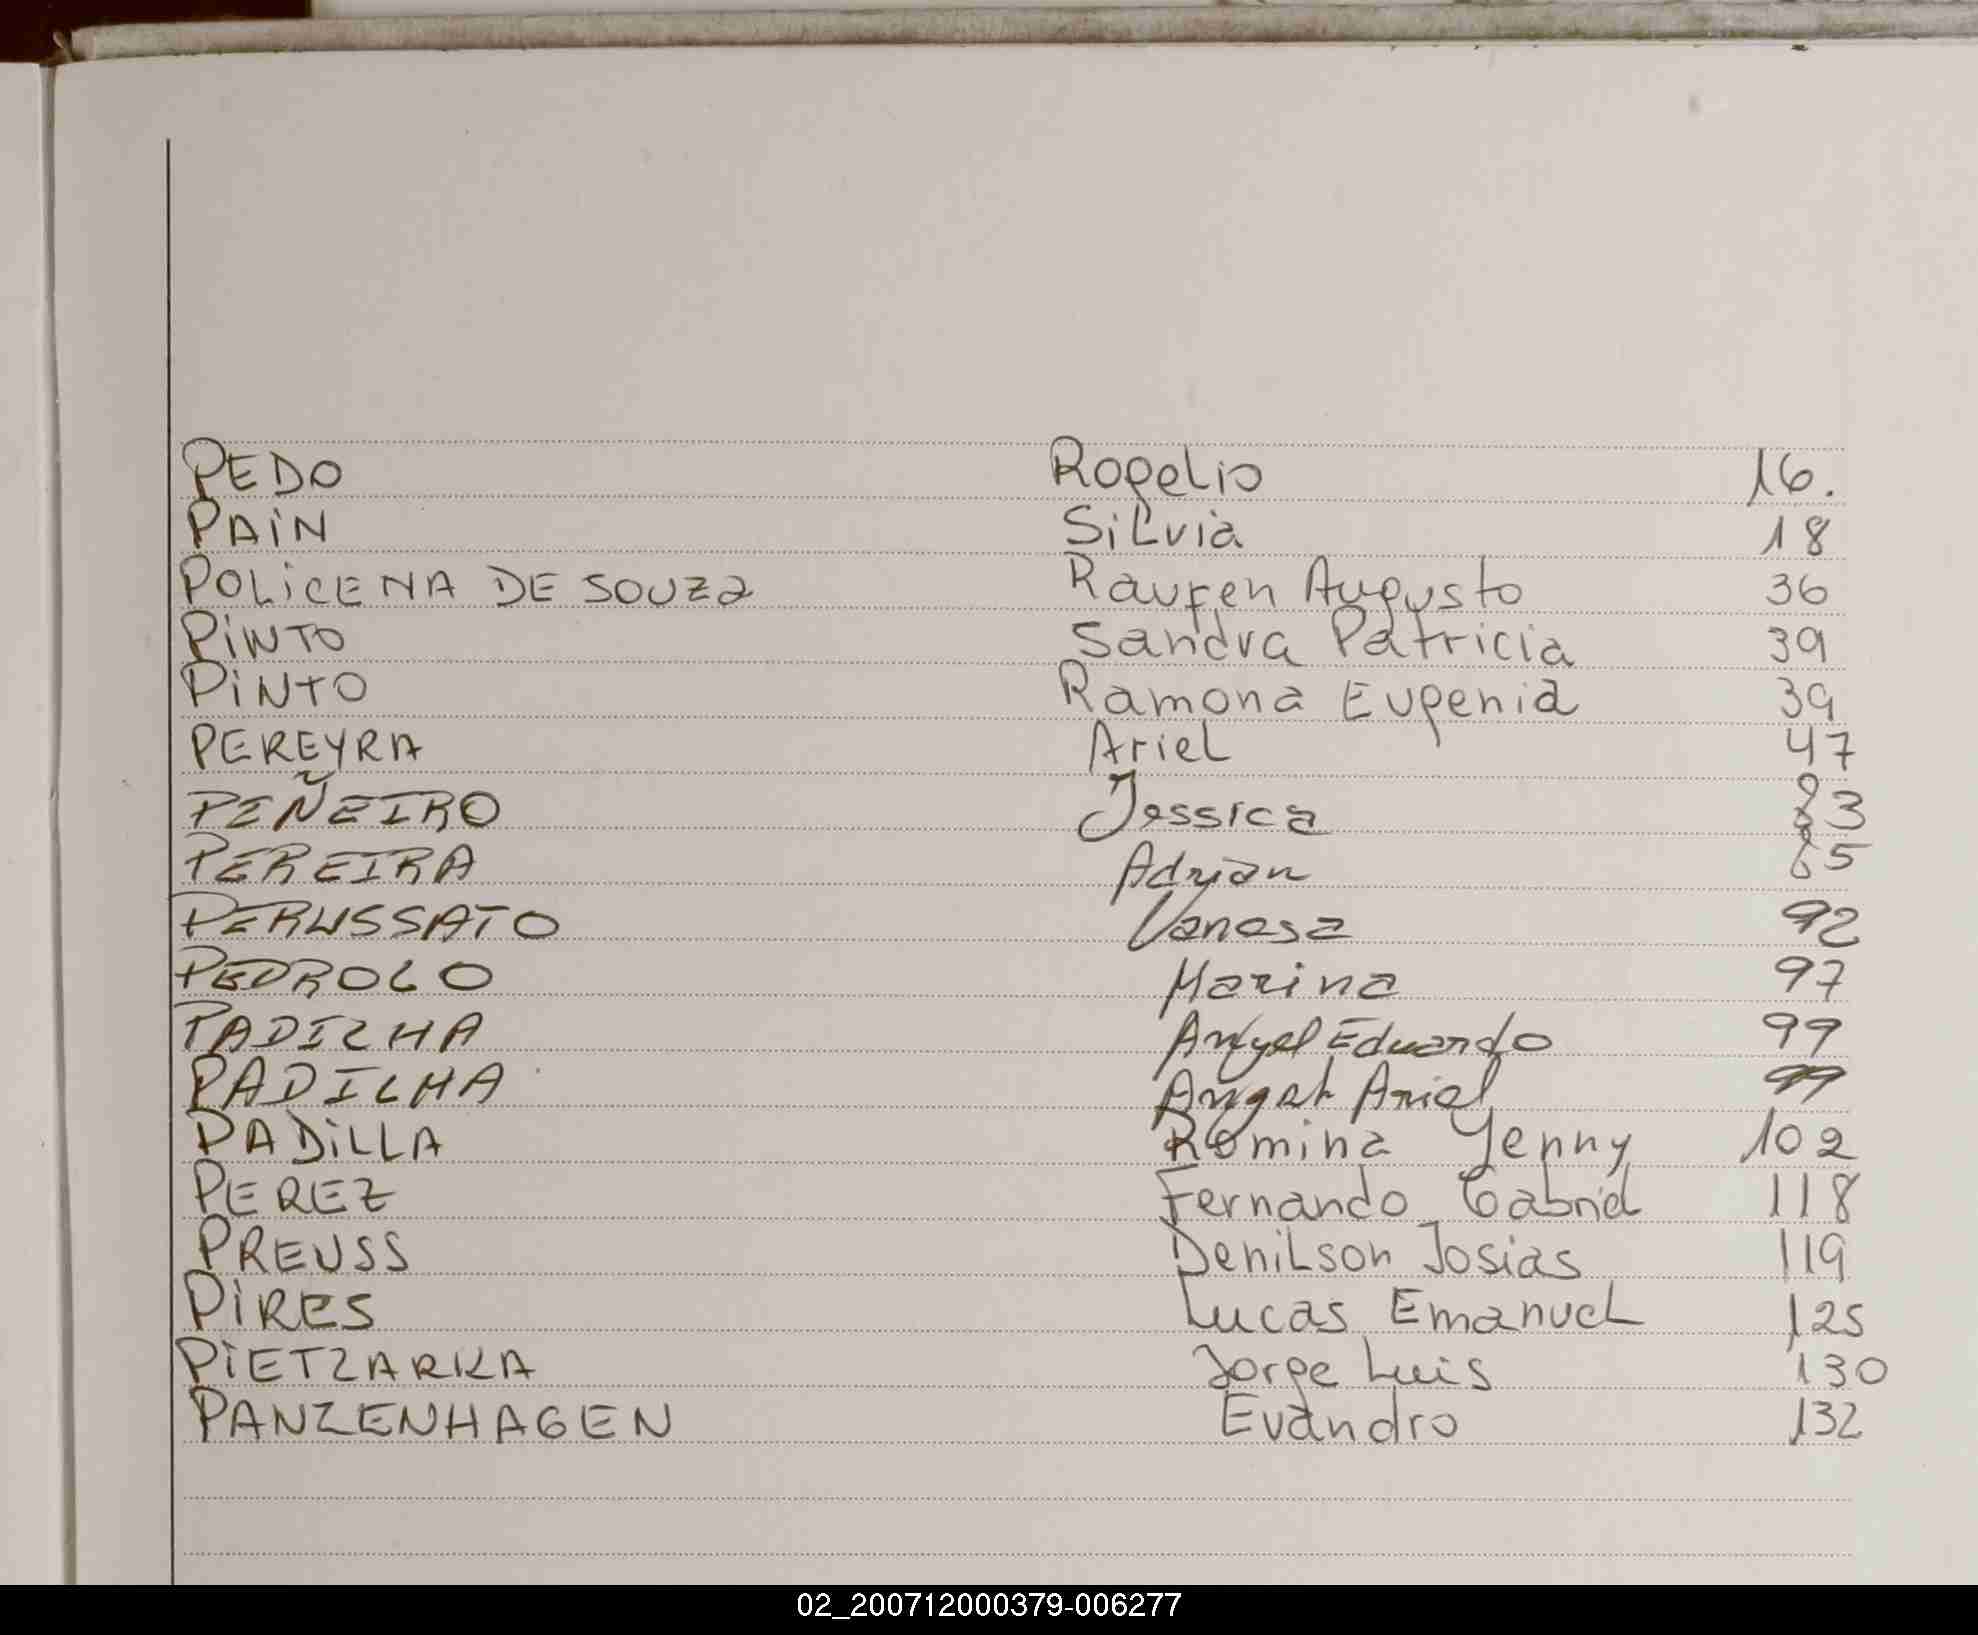 PEDO Rogelio 16.
PAIN Silvia 18
POLICENA DE SOUZA Augusto 36
PINTO Sandra Patricia 39
PINTO Ramona Eugenia 39
PEREYRA Ariel 47
PEÑEIRO Jessica 83
PEREIRA Adrian 85
PERUSSATO Vanesa 92
PEDROLO Marina 97
PADILHA Angel Eduardo 99
PADILHA Angel Ariel 99
PADILLA Romina Yenny 102
PEREZ Fernando Gabriel 118
PREUSS Denilson Josias 119
PIRES Lucas Emanuel 125
PIETZARKA Jorge Luis 130
PANZENHAGEN Evandro 132
02_200712000379-006277